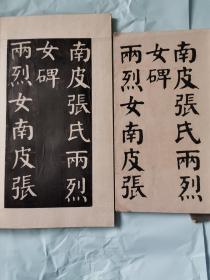 南皮張氏兩烈
女碑
兩烈女南皮張
南皮張氏兩烈
女碑
兩烈女南皮張